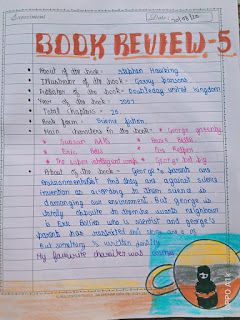 Experiment
Date : 20/08/20
BOOK REVIEW-5
• About of the book- Stephan Hawking
• Illustrator of the book- Garry Parsons
• Publication of the book- Doubleday united kingdom
• Year of the book- 2007
• Total Chapters - 30
• Book form - Science fiction
• Main characters in the book- * George greenby
* Susan Bells * Annie Bells
* Eric Bells * Dr. Reeper
* The super intelligent comp. * George's pet pig
• About of the book - George's parents are
environmentalist And they are against science
invention as according to them science is
damaging our environment. But george is
totally opposite to them. He wants neighbour
is Eric Bellis who is scientist and george's
parents has restricted his
But something is written destiny
My favourite character was Cosmos
OPPO A5s